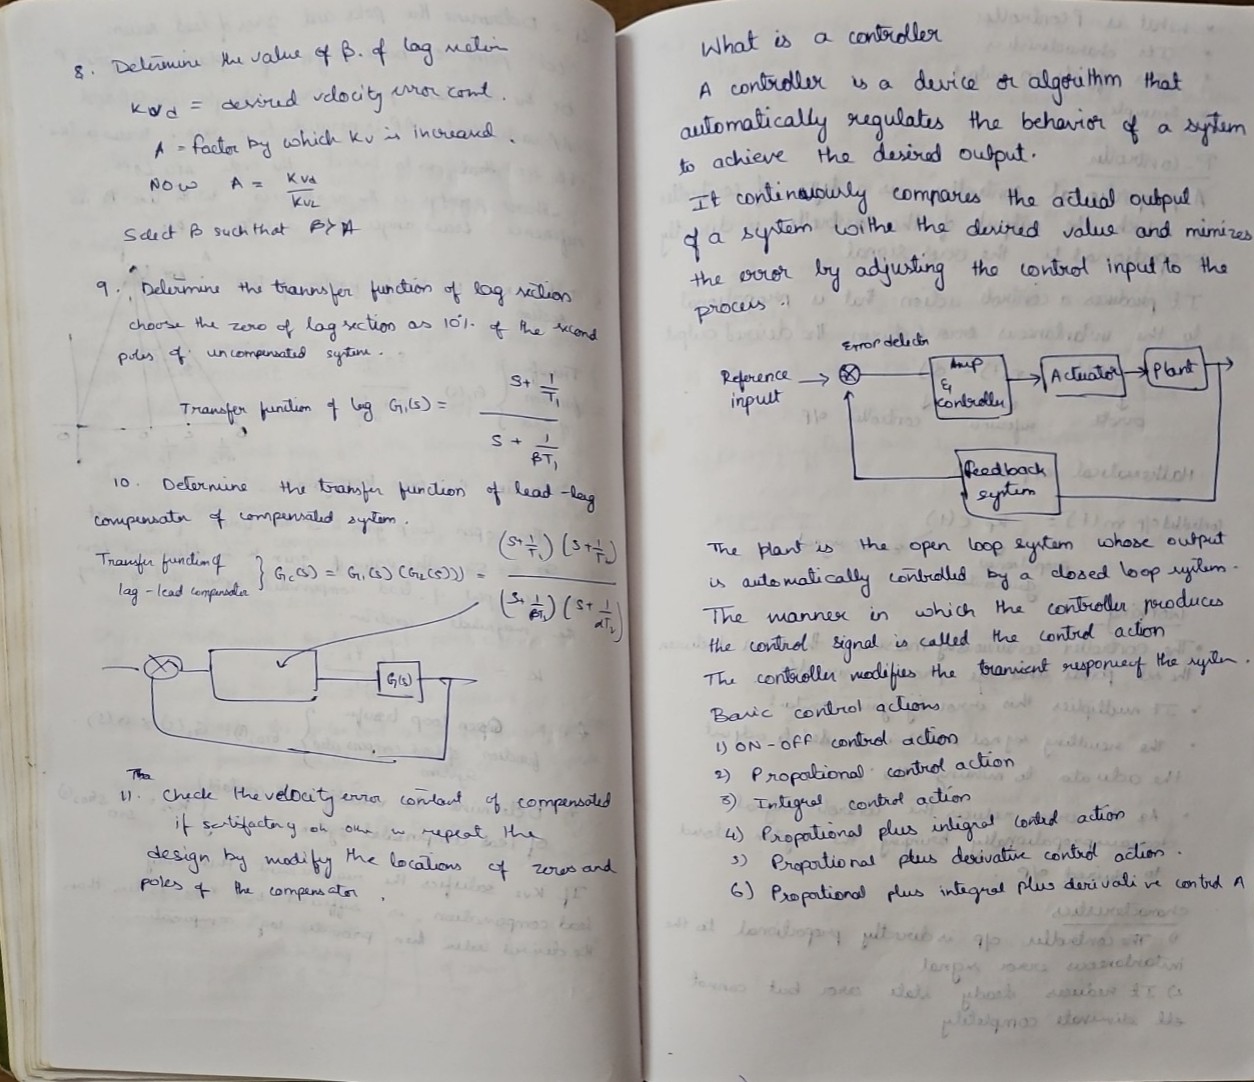 8. Determine the value of β. of lag section
Kvd = desired velocity error cont.
A = factor by which Kv is increased.
NOW A = Kvd / KvL
Select β such that β > A
9. Determine the trannsfer function of lag section
choose the zero of lag section as 10% of the second
poles of uncompensated system.
Transfer function of lag G1(s) = (S + 1/T1) / (S + 1/βT1)
10. Determine the transfer function of lead-lag
compensator of compensated system.
Transfer function of
lag-lead compensator } Gc(s) = G1(s) (G2(s))) = (S+1/T1) (S+1/T2) / (S+1/βT1) (S+1/αT2)
G(s)
The
11. Check the velocity error constant of compensated
if satisfactory repeat the
design by modify the locations of zeroes and
poles of the compensator.
What is a controller
A controller is a device or algorithm that
automatically regulates the behavior of a system
to achieve the desired output.
It continuously compares the actual output
of a system withe the desired value and mimizes
the error by adjusting the control input to the
process.
Error detector
Reference
inputt
Amp
&
controller
Actuator
Plant
Feedback
system
The plant is the open loop system whose output
is automatically controlled by a closed loop system.
The manner in which the controller produces
the control signal is called the control action
The controller modifies the transient response of the system.
Basic control actions
1) ON-OFF control action
2) Propotional control action
3) Integral control action
4) Propotional plus integral control action
5) Proportional plus derivative control action.
6) Propotional plus integral plus derivative control A